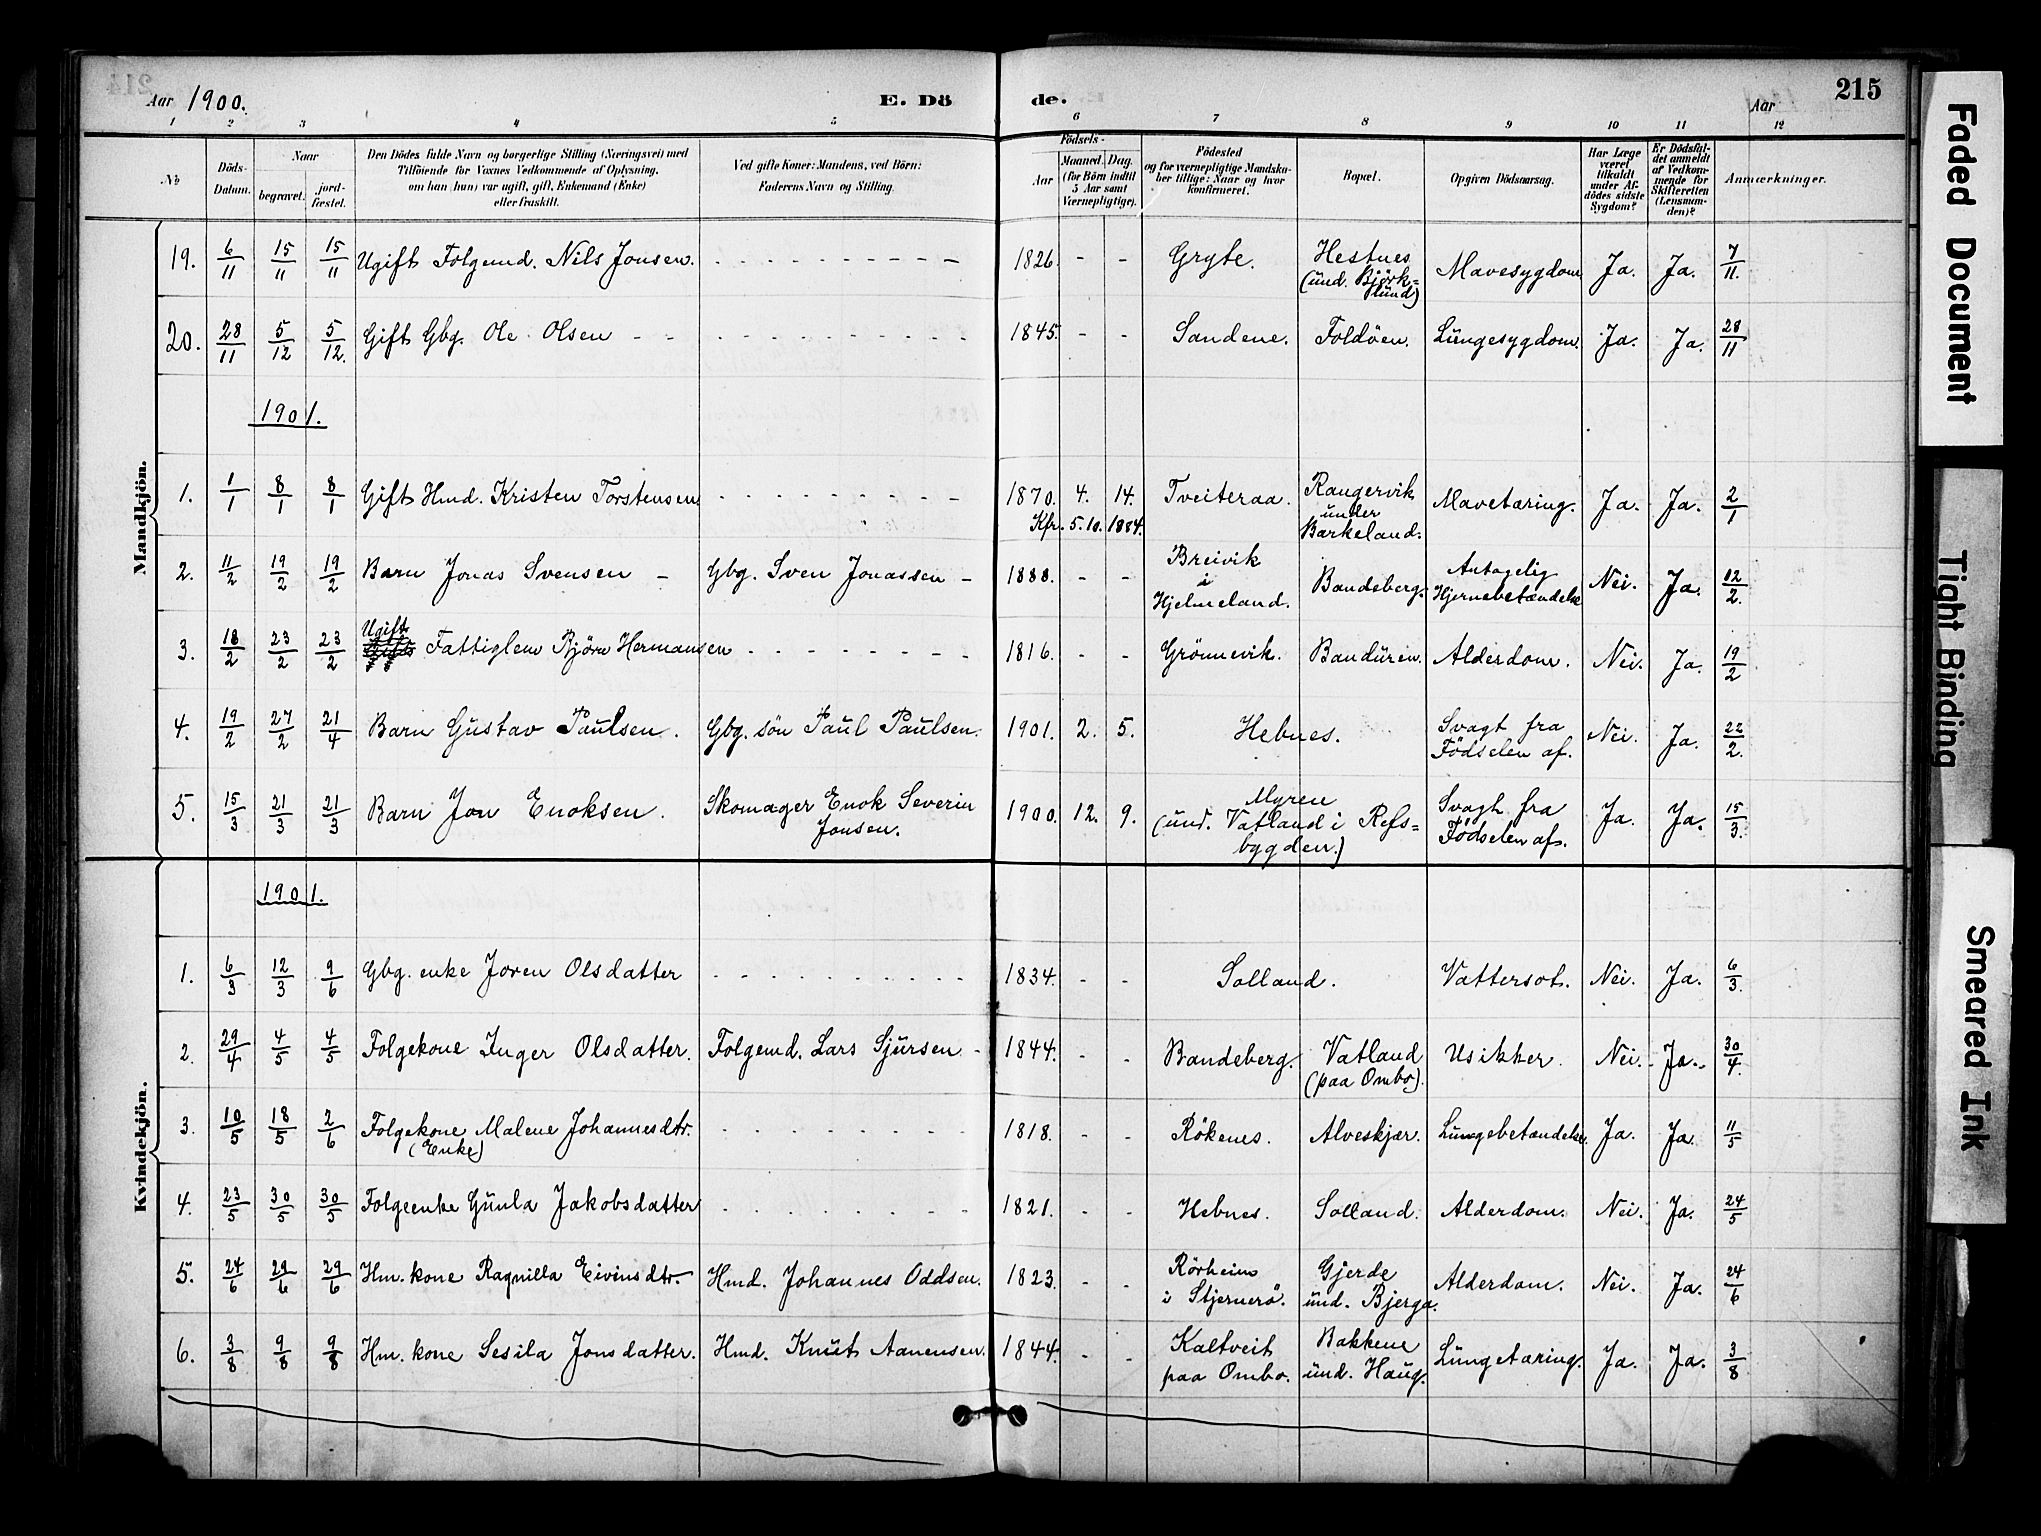 Aar 1900. E. Dö de. Aar 215
1 2 3 4 5 6 7 8 9 10 11 12
№ Döds-Datum. Naar begravet. jord-fæstet. Den Dödes fulde Navn og borgerlige Stilling (Næringsvei) med Tilföiende for Voxnes Vedkommende af Oplysning, om han (hun) var ugift, gift, Enkemand (Enke) eller fraskilt. Ved gifte Koner: Mandens, ved Börn: Faderens Navn og Stilling. Födsels- Aar Maaned. Dag. (for Börn indtil 5 Aar samt Værnepligtige). Födested og for værnepligtige Mandskaber tillige: Naar og hvor konfirmeret. Bopæl. Opgiven Dödsaarsag. Har Læge været tilkaldt under Afdödes sidste Sygdom? Er Dödsfaldet anmeldt af Vedkommende for Skifteretten (Lensmanden)? Anmærkninger.
Mandkjön.
19. 6/11 15/11 15/11 Ugift Folgemd. Nils Jonsen. - - - 1826. - - Gryte. Hestnes (und. Björk=lund) Mavesygdom Ja. Ja. 7/11.
20. 28/11 5/12 5/12. Gift Gbg. Ole Olsen - - - 1845. - - Sandene. Foldöen. Lungesygdom. Ja. Ja. 28/11
1901.
1. 1/1 8/1 8/1 Gift Hmd. Kristen Torstensen - - - 1870. 4. 14. Tveiteraa. Rangervik under Barkeland. Mavetæring. Ja. Ja. 2/1
Kfr. 5. 10. 1884.
2. 11/2 19/2 19/2 Barn Jonas Svensen - Gbg. Sven Jonassen - 1888. - - Breivik i Hjelmeland. Bandeberg. Antagelig Hjernebetændelse Nei. Ja. 12/2.
3. 18/2 23/2 23/2 Ugift Fattiglem Björn Hermansen - - - 1816. - - Grönnevik. Banduren. Alderdom. Nei. Ja. 19/2
4. 19/2 27/2 21/4 Barn Gustav Paulsen. Gbg. sön Paul Paulsen. 1901. 2. 5. Hebnes. Svagt fra Födselen af. Nei. Ja. 22/2.
5. 15/3 21/3 21/3 Barn Jon Enoksen. Skomager Enok Severin Jonsen. 1900. 12. 9. Myren (und. Vatland i Refs=bygden.) Svagt fra Födselen af. Ja. Ja. 15/3.
Kvindekjön.
1901.
1. 6/3 12/3 9/6 Gbg. enke Joren Olsdatter - - - 1834. - - Solland. Vattersot. Nei. Ja. 6/3.
2. 29/4 4/5 4/5 Folgekone Inger Olsdatter. Folgemd. Lars Sjursen - 1844. - - Bandeberg. Vatland (paa Ombo). Usikker. Nei. Ja. 30/4.
3. 10/5 18/5 2/6 Folgekone Malene Johannesdtr. (Enke) - - - 1818. - - Rökenes. Alveskjær. Lungebetændelse. Ja. Ja. 11/5
4. 23/5 30/5 30/5 Folgeenke Gunla Jakobsdatter - - - 1821. - - Hebnes. Solland. Alderdom. Nei. Ja. 24/5
5. 24/6 29/6 29/6 Hm. kone Ragnilla Eivinsdtr. Hmd. Johannes Oddsen. 1823. - - Rörheim i Stjernerö. Gjerde und. Bjerga. Alderdom. Nei. Ja. 24/6
6. 3/8 9/8 9/8 Hm. kone Sesila Jonsdatter. Hmd. Knut Aanensen. 1844. - - Kaltveit paa Ombo. Bakkene und. Haug. Lungetæring. Ja. Ja. 3/8
Faded Document
Tight Binding
Smeared Ink